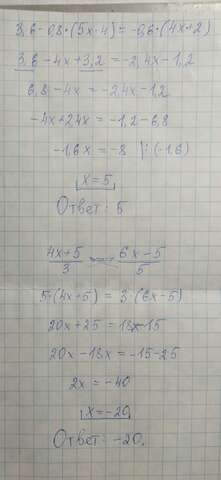 3,6-0,8·(5x-4)=-0,6·(4x+2)
3,6-4x+3,2=-2,4x-1,2
6,8-4x=-2,4x-1,2
-4x+2,4x=-1,2-6,8
-1,6x=-8 |:(-1,6)
x=5
Ответ: 5
4x+5/3 = 6x-5/5
5·(4x+5)=3·(6x-5)
20x+25=18x-15
20x-18x=-15-25
2x=-40
x=-20
Ответ: -20.